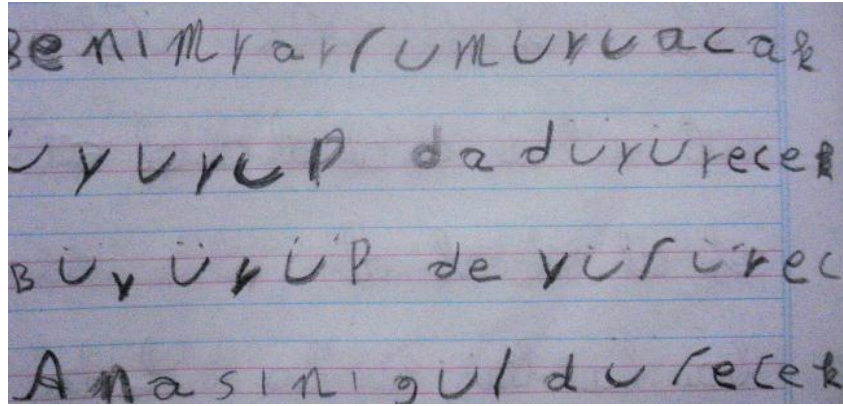 Benım yarrum uyuacak
Uyuyup da düyüyecek
Büyüyüp de yürüyec
Anasını guldurecek